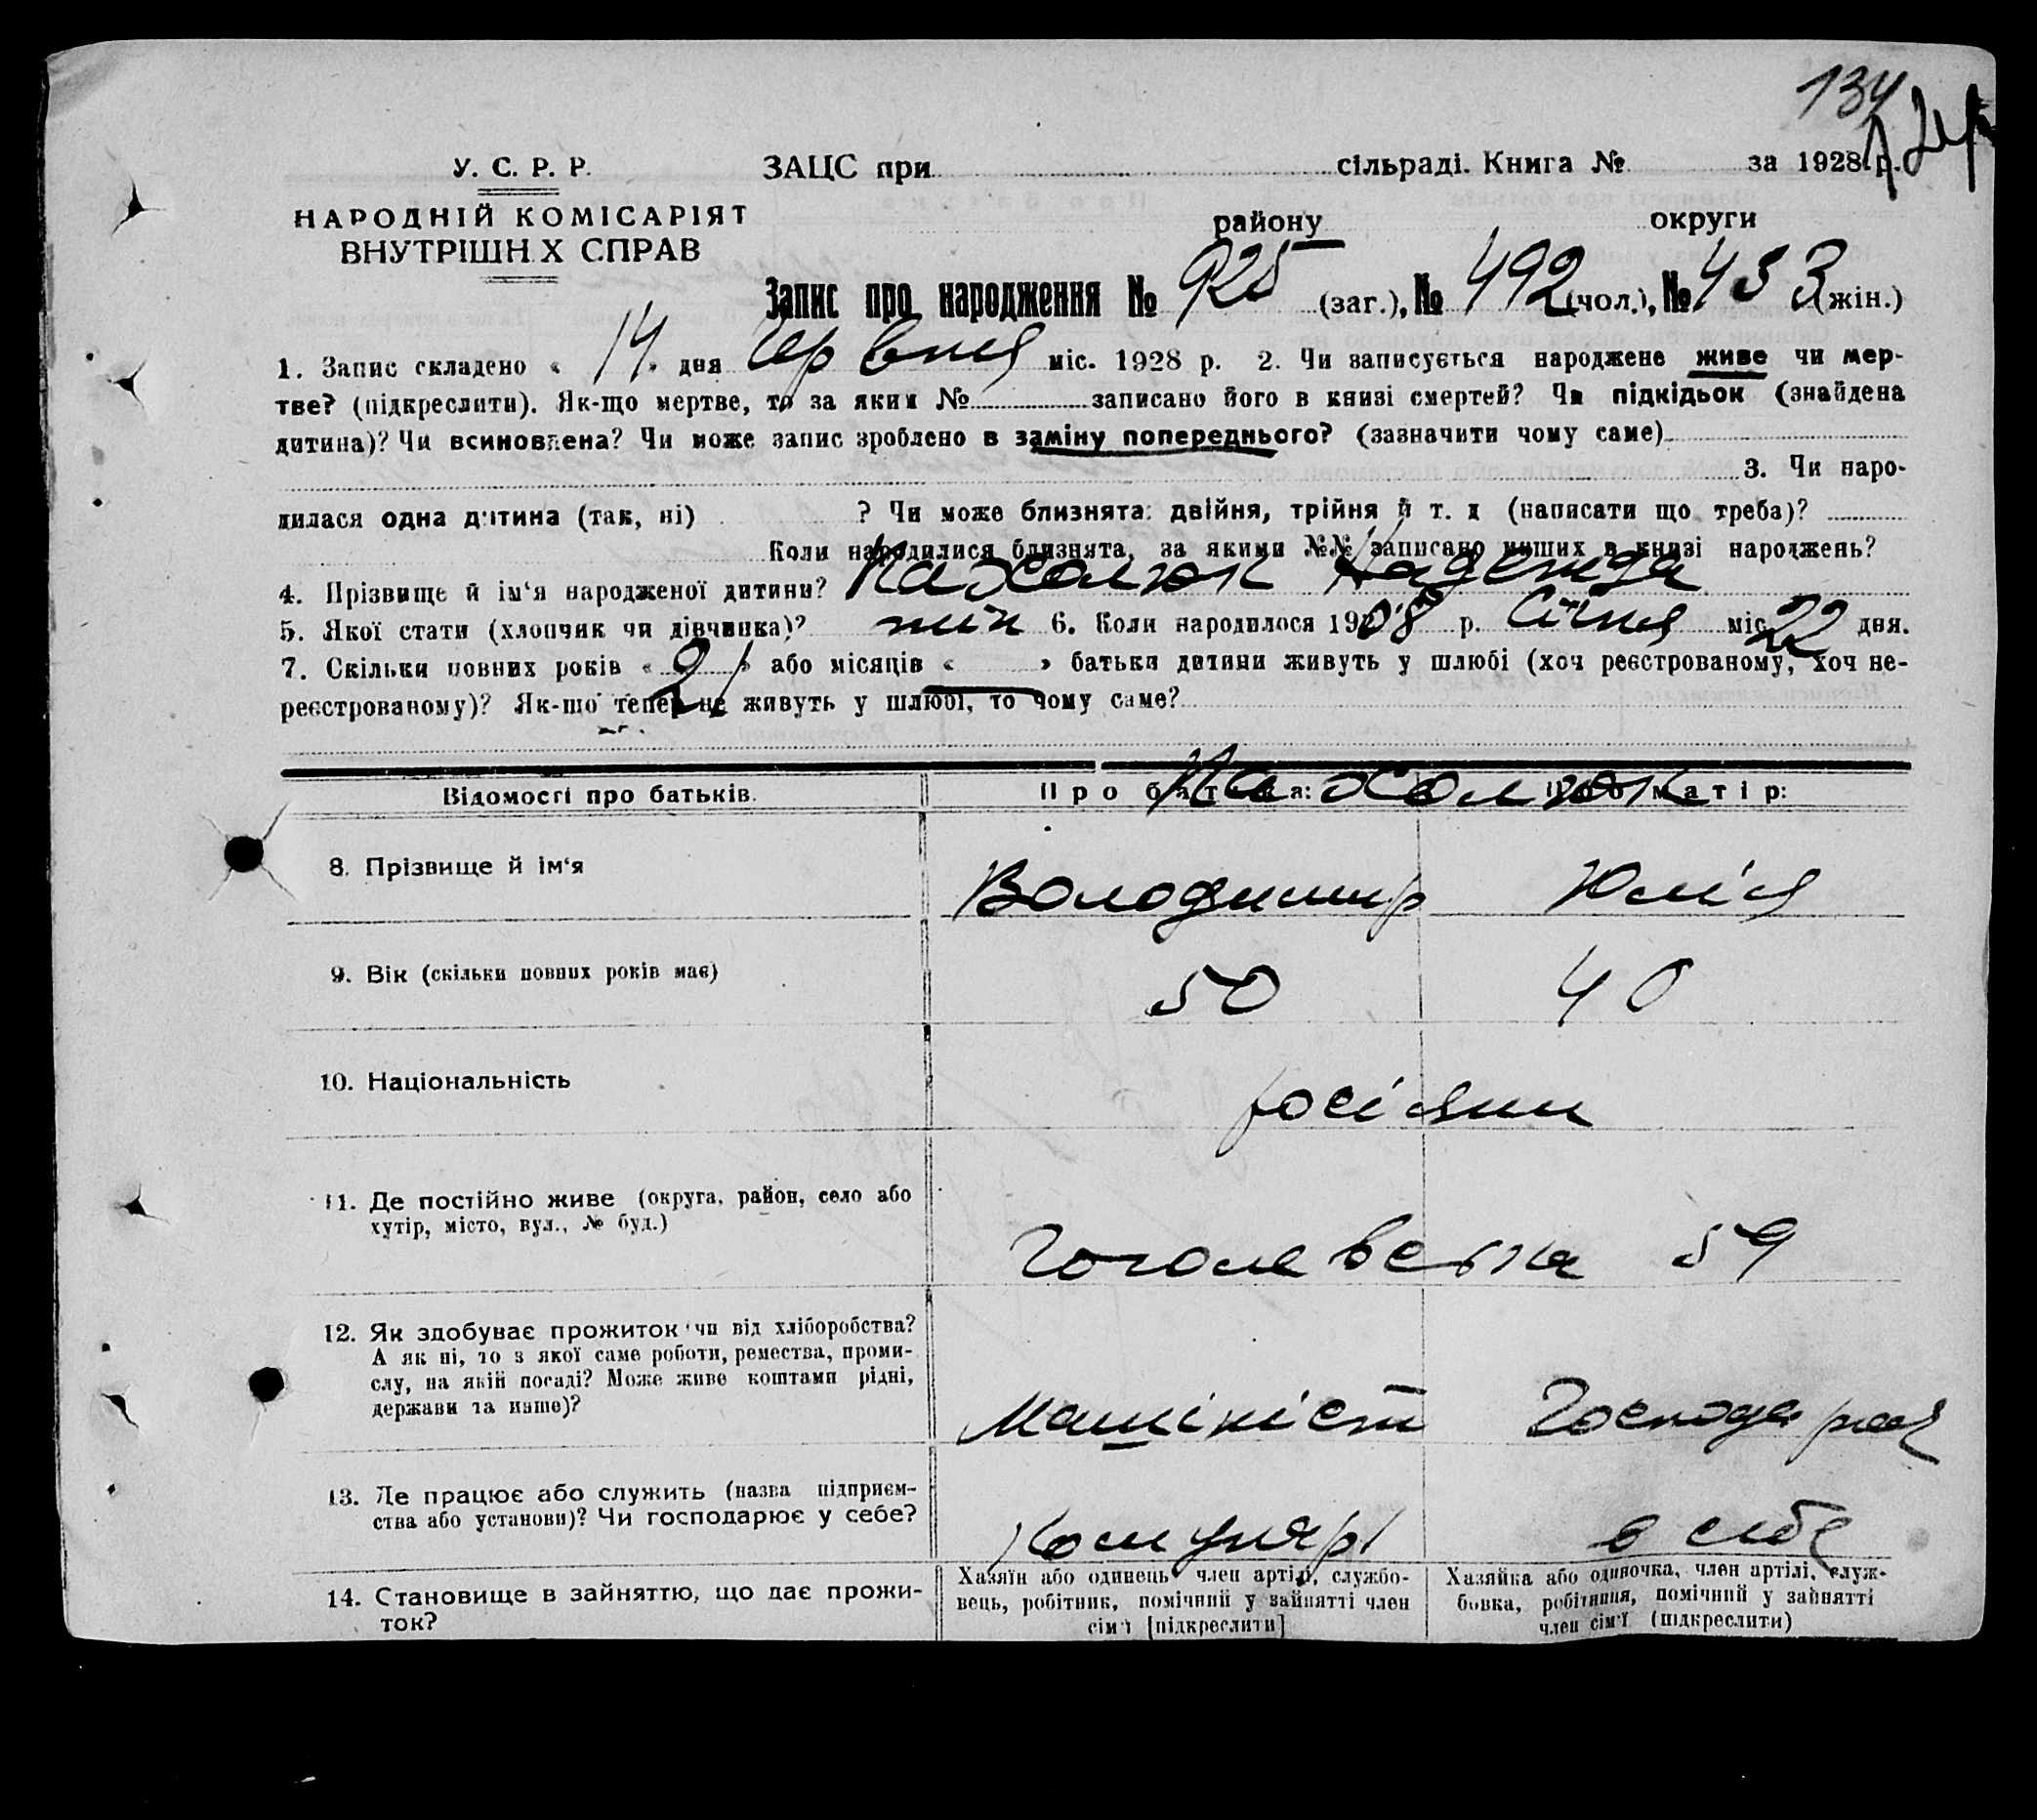 134
У. С. Р. Р. ЗАЦС при сільраді. Книга № за 1928 р.
НАРОДНІЙ КОМІСАРІЯТ району округи
ВНУТРІШН Х СПРАВ
Запис про народження № 925 (заг.), № 492 (чол.), № 433 (жін.)
1. Запис складено « 14 » дня червня міс. 1928 р. 2. Чи записується народжене живе чи мер-
тве? (підкреслити). Як-що мертве, то за яким № записано його в книзі смертей? Чи підкідьок (знайдена
дитина)? Чи всиновлена? Чи може запис зроблено в заміну попереднього? (зазначити чому саме)
3. Чи наро-
дилася одна дитина (так, ні) ? Чи може близнята: двійня, трійня й т. д (написати що треба)?
Коли народилися близнята, за якими №№ записано инших в книзі народжень?
4. Прізвище й ім‘я народженої дитини? Надежда
5. Якої стати (хлопчик чи дівчинка)? жін 6. Коли народилося 1908 р. Січня міс. 22 дня.
7. Скільки повних років « 21 » або місяців « » батьки дитини живуть у шлюбі (хоч реєстрованому, хоч не-
реєстрованому)? Як-що тепер не живуть у шлюбі, то чому саме?
Відомості про батьків. Про батька: Про матір:
8. Прізвище й ім‘я Володимир Юлія
9. Вік (скільки повних років має) 50 40
10. Національність росіяни
11. Де постійно живе (округа, район, село або
хутір, місто, вул., № буд.) Гоголевська 59
12. Як здобуває прожиток чи від хліборобства?
А як ні, то з якої саме роботи, ремества, проми-
слу, на якій посаді? Може живе коштами рідні,
держави та инше)? Машініст Господарює
13. Де працює або служить (назва підприєм-
ства або установи)? Чи господарює у себе? в себе
14. Становище в зайняттю, що дає прожи-
ток?
Хазяїн або одинець член артілі, службо-
вець, робітник, помічний у зайнятті член
сім‘ї [підкреслити]
Хазяйка або одиночка, член артілі, служ-
бовка, робітниця, помічний у зайнятті
член сім‘ї (підкреслити)